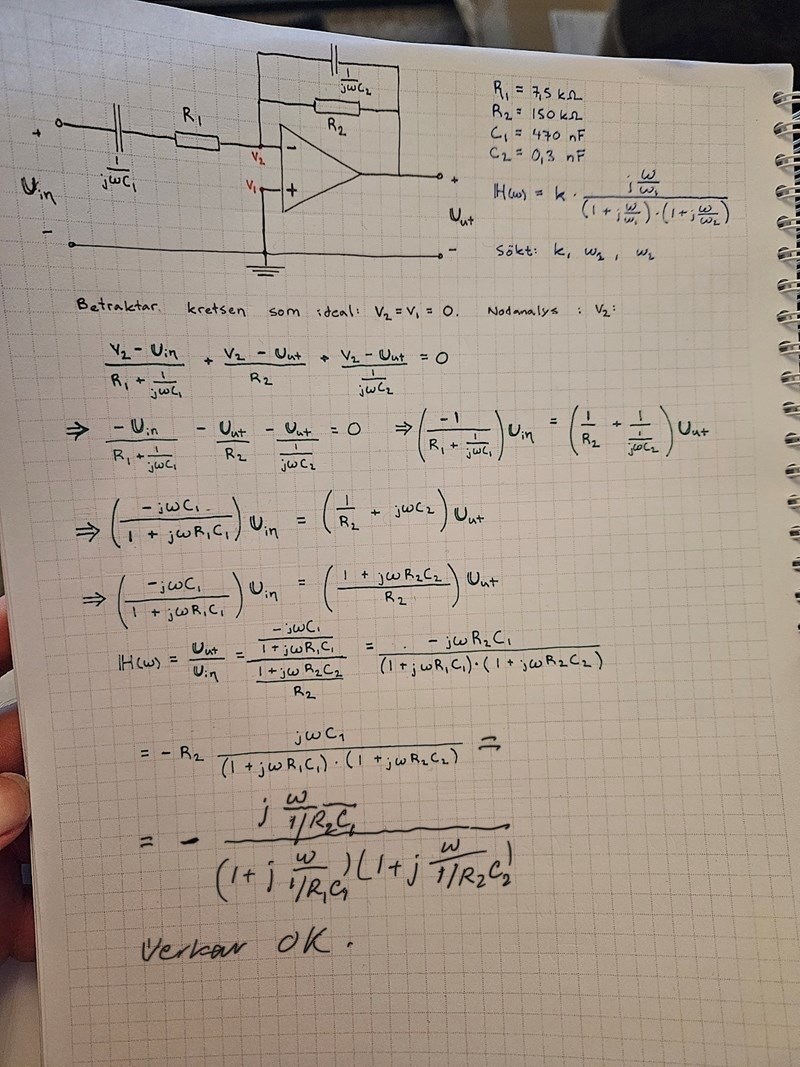 R₁ = 7,5 kΩ
R₂ = 150 kΩ
C₁ = 470 nF
C₂ = 0,3 nF
ℍ(ω) = k · (j ω/ω₁) / ((1 + j ω/ω₁) · (1 + j ω/ω₂))
Sökt: k, ω₁, ω₂
1/(jωC₂)
R₂
R₁
1/(jωC₁)
V₂
V₁
−
+
+
Uin
−
+
Uut
−
Betraktar kretsen som ideal: V₂ = V₁ = 0. Nodanalys : V₂:
(V₂ − Uin)/(R₁ + 1/(jωC₁)) + (V₂ − Uut)/R₂ + (V₂ − Uut)/(1/(jωC₂)) = 0
⇒ −Uin/(R₁ + 1/(jωC₁)) − Uut/R₂ − Uut/(1/(jωC₂)) = 0 ⇒ (−1/(R₁ + 1/(jωC₁))) Uin = (1/R₂ + 1/(1/(jωC₂))) Uut
⇒ (−jωC₁/(1 + jωR₁C₁)) Uin = (1/R₂ + jωC₂) Uut
⇒ (−jωC₁/(1 + jωR₁C₁)) Uin = ((1 + jωR₂C₂)/R₂) Uut
ℍ(ω) = Uut/Uin = (−jωC₁/(1 + jωR₁C₁))/((1 + jωR₂C₂)/R₂) = −jωR₂C₁/((1 + jωR₁C₁)·(1 + jωR₂C₂))
= − R₂ jωC₁/((1 + jωR₁C₁)·(1 + jωR₂C₂)) =
= − (j ω/(1/R₂C₁))/((1 + j ω/(1/R₁C₁))(1 + j ω/(1/R₂C₂)))
Verkar OK.